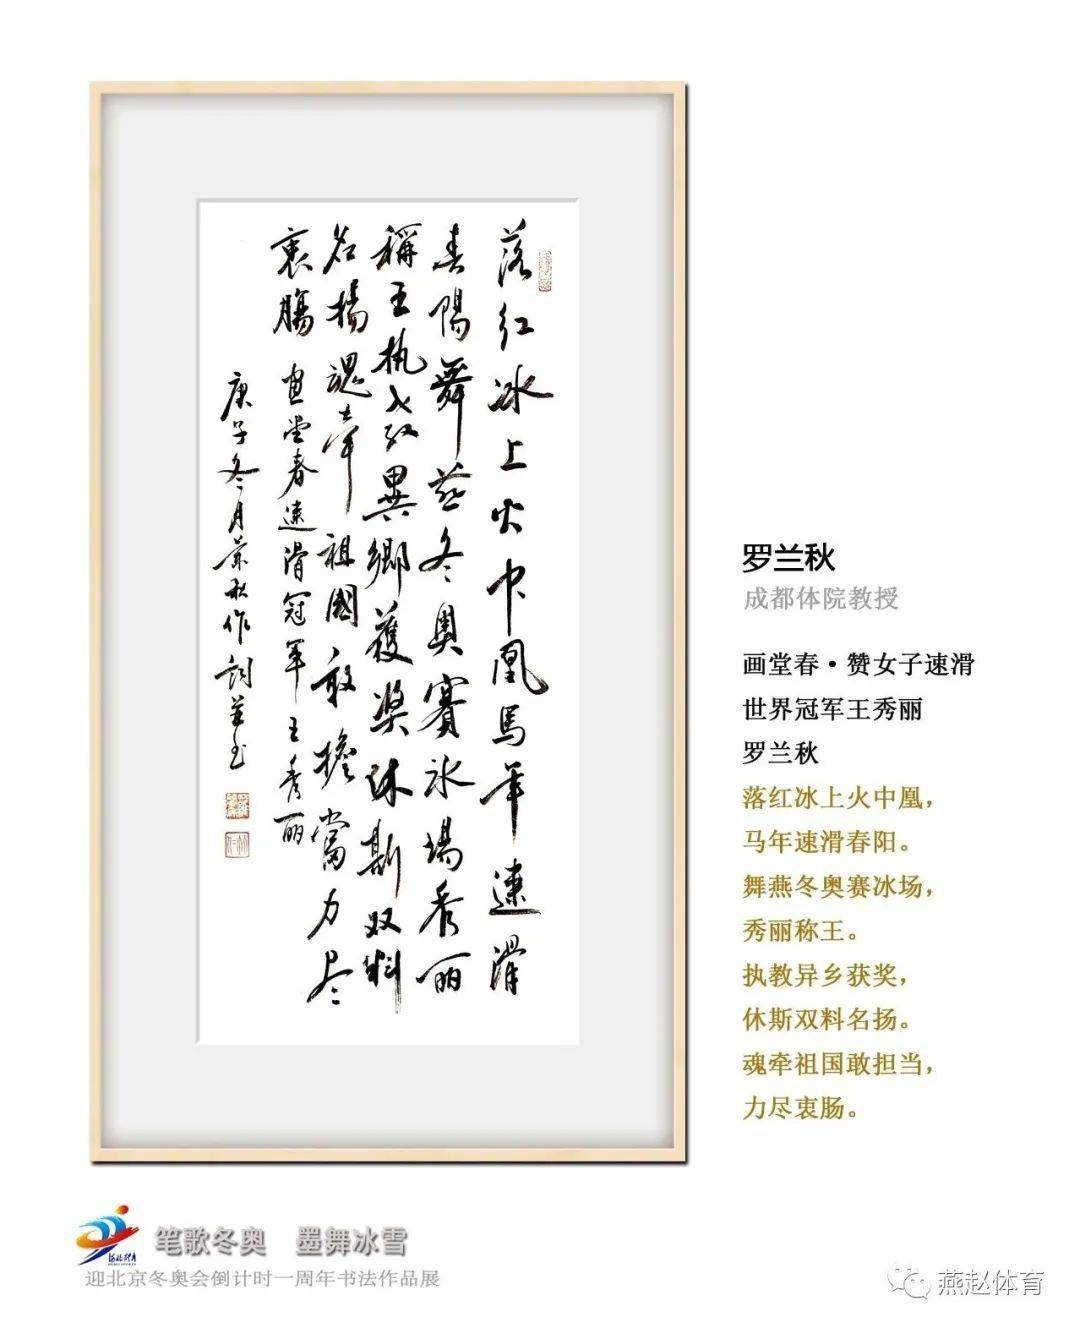 落红冰上火中凰馬年速滑
春陽舞燕冬奥賽冰場秀丽
稱王执教異鄉獲奖休斯双料
名揚魂牽祖國敢擔當力尽
衷腸 画堂春速滑冠军王秀丽
庚子冬月兰秋作词并书
罗兰秋
成都体院教授
画堂春·赞女子速滑
世界冠军王秀丽
罗兰秋
落红冰上火中凰，
马年速滑春阳。
舞燕冬奥赛冰场，
秀丽称王。
执教异乡获奖，
休斯双料名扬。
魂牵祖国敢担当，
力尽衷肠。
笔歌冬奥 墨舞冰雪
迎北京冬奥会倒计时一周年书法作品展
燕赵体育